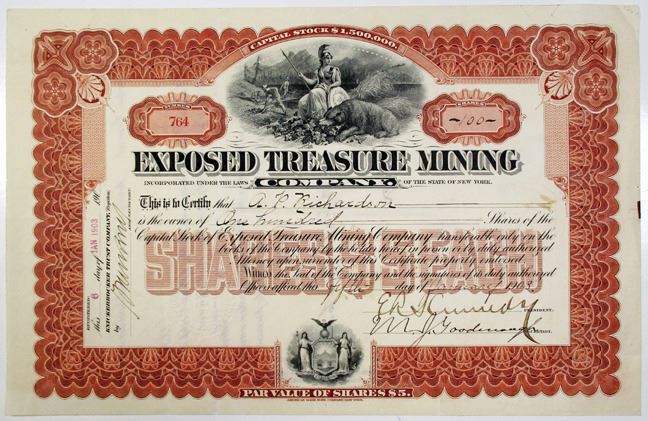 CAPITAL STOCK $1,500,000.
NUMBER
764
SHARES
100
EXPOSED TREASURE MINING
INCORPORATED UNDER THE LAWS COMPANY OF THE STATE OF NEW YORK.
This is to Certify that A. P. Richardson
is the owner of One hundred Shares of the
Capital Stock of Exposed Treasure Mining Company transferable only on the
books of the Company by the holder hereof in person or by duly authorized
Attorney upon surrender of this Certificate properly endorsed.
Witness the Seal of the Company and the signatures of its duly authorized
Officers affixed this fifth day of January 1903
PRESIDENT.
SHARES
REGISTERED:
this 6 day of JAN 1903 190
KNICKERBOCKER TRUST COMPANY, Registrar,
by
PAR VALUE OF SHARES $5.